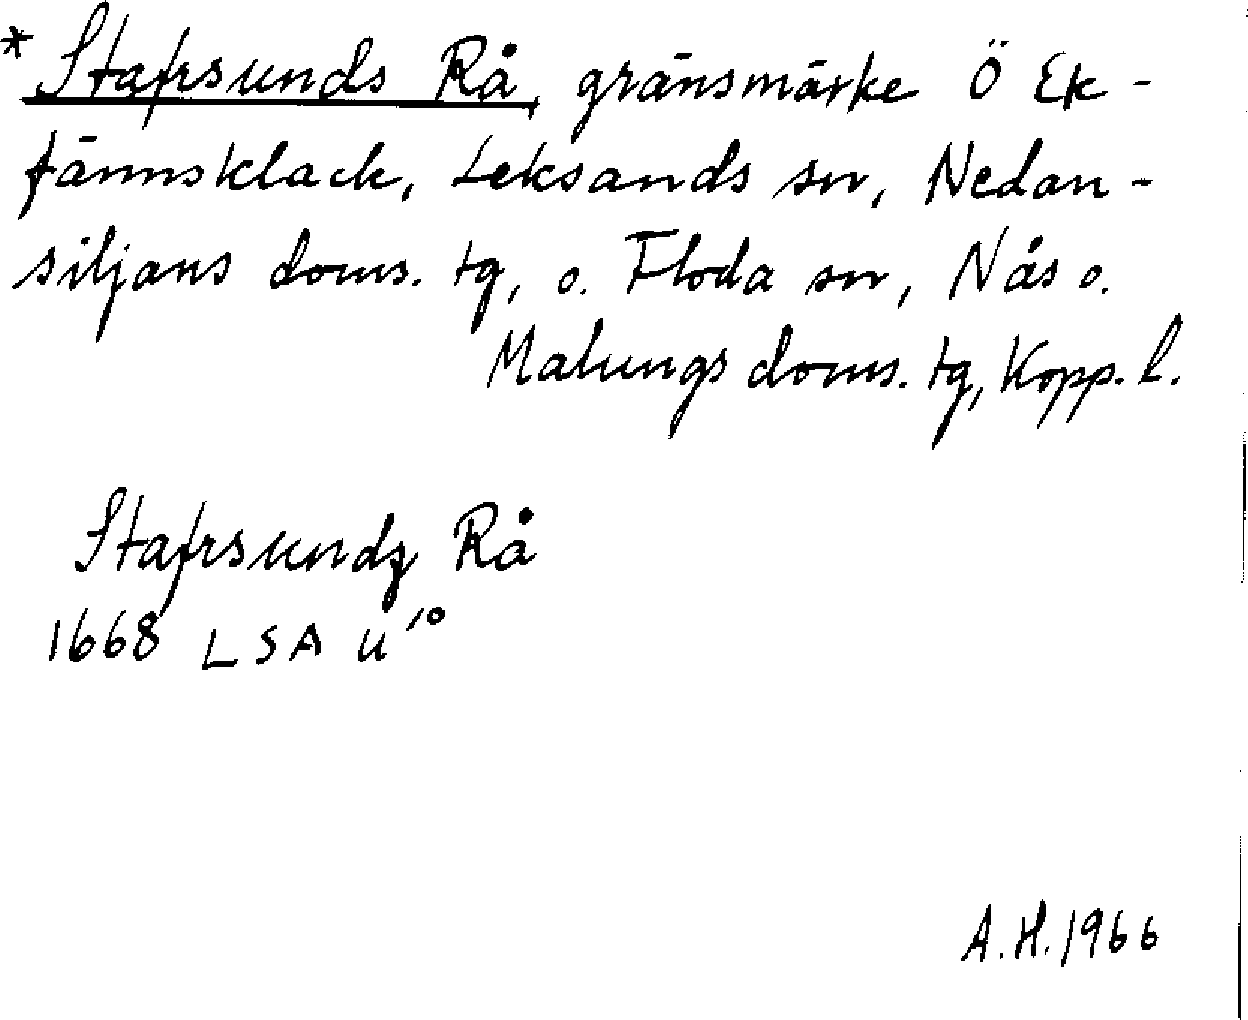 *Stafrsunds Rå, gränsmärke Ö Ek-
tännsklack, Leksands sn, Nedan-
siljans doms. tg, o. Floda sn, Nås o.
Malungs doms. tg, Kopp. l.
Stafrsundz Rå
1668 LSA U 10
A.H. 1966